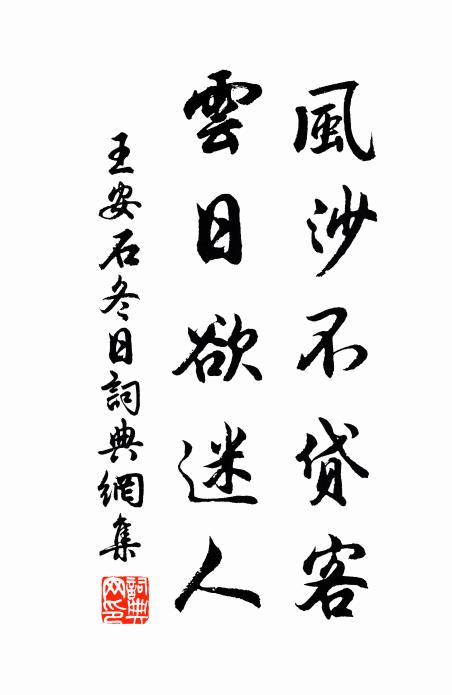 風沙不貸客
雲日欲迷人
王安石冬日詞典網集
詞典網印